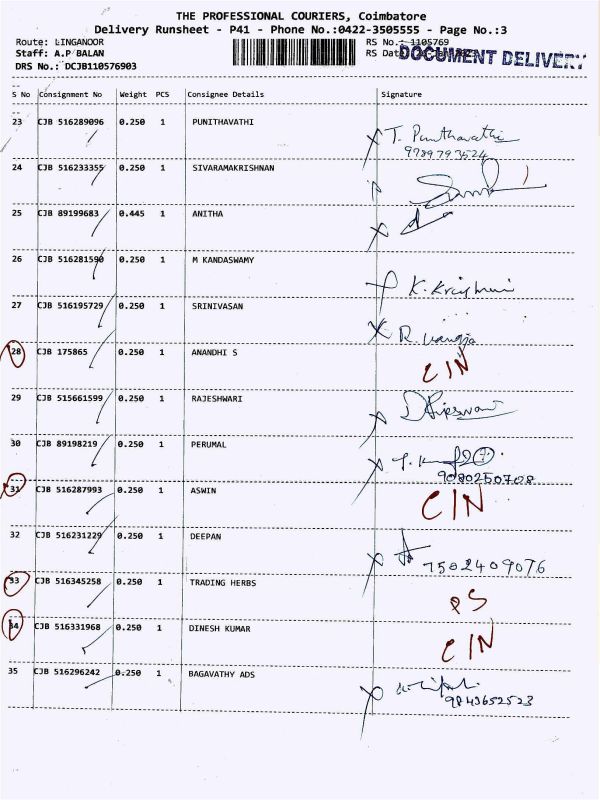 THE PROFESSIONAL COURIERS, Coimbatore
Delivery Runsheet - P41 - Phone No.:0422-3505555 - Page No.:3
Route: LINGANOOR
RS No.: 1105769
Staff: A.P BALAN
RS Date:
DOCUMENT DELIVERY
DRS No.: DCJB110576903
S No Consignment No Weight PCS Consignee Details Signature
23 CJB 516289096 0.250 1 PUNITHAVATHI T. Punithavathi
9789793524
24 CJB 516233355 0.250 1 SIVARAMAKRISHNAN
25 CJB 89199683 0.445 1 ANITHA
26 CJB 516281590 0.250 1 M KANDASWAMY K.
27 CJB 516195729 0.250 1 SRINIVASAN R.
28 CJB 175865 0.250 1 ANANDHI S CIN
29 CJB 515661599 0.250 1 RAJESHWARI
30 CJB 89198219 0.250 1 PERUMAL
9080250708
31 CJB 516287993 0.250 1 ASWIN CIN
32 CJB 516231229 0.250 1 DEEPAN 7502409076
33 CJB 516345258 0.250 1 TRADING HERBS PS
34 CJB 516331968 0.250 1 DINESH KUMAR CIN
35 CJB 516296242 0.250 1 BAGAVATHY ADS
9843652523